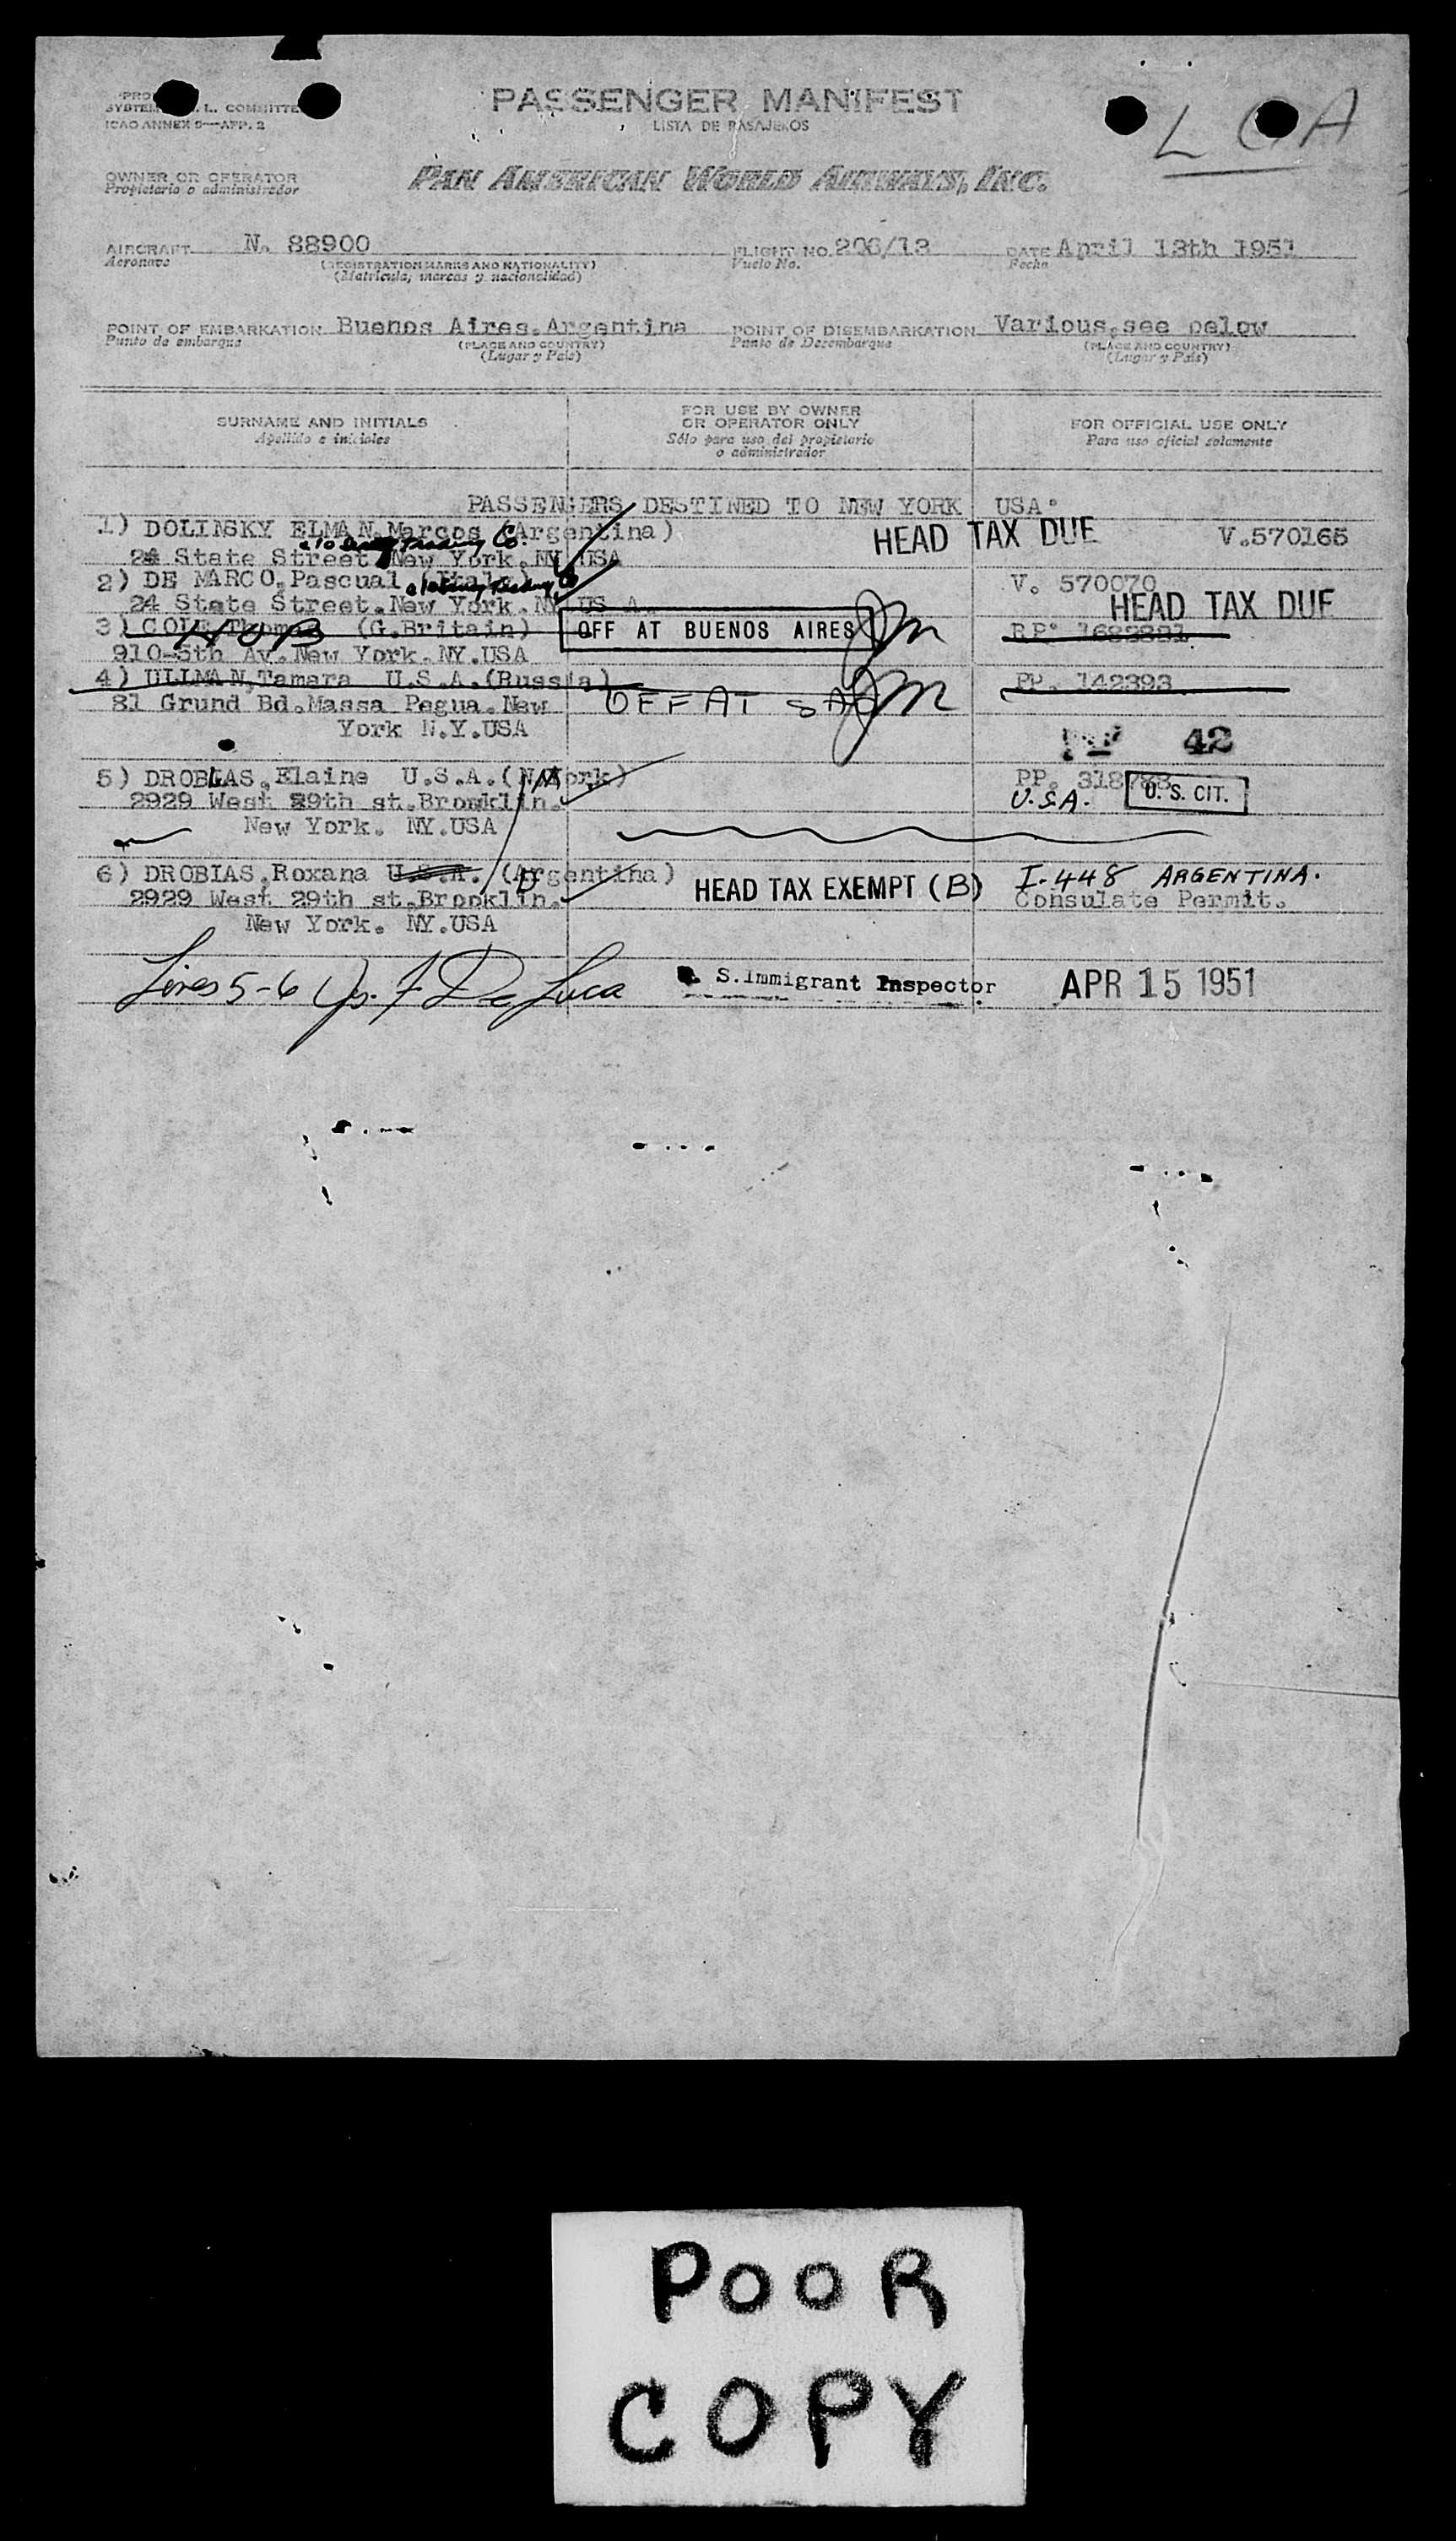 PASSENGER MANIFEST
LISTA DE PASAJEROS
L O A
ICAO ANNEX 9—APP. 2
OWNER OR OPERATOR
Propietario o administrador
PAN AMERICAN WORLD AIRWAYS, INC.
AIRCRAFT N. 88900 FLIGHT NO. 206/13 DATE April 13th 1951
Aeronave (REGISTRATION MARKS AND NATIONALITY) Vuelo No. Fecha
(Matricula, marcas y nacionalidad)
POINT OF EMBARKATION Buenos Aires.Argentina POINT OF DISEMBARKATION Various,see below
Punto de embarque (PLACE AND COUNTRY) Punto de Desembarque (PLACE AND COUNTRY)
(Lugar y País) (Lugar y País)
SURNAME AND INITIALS FOR USE BY OWNER OR OPERATOR ONLY FOR OFFICIAL USE ONLY
Apellido e iniciales Sólo para uso del propietario o administrador Para uso oficial solamente
PASSENGERS DESTINED TO NEW YORK USA
1) DOLINSKY ELMAN.Marcos (Argentina) HEAD TAX DUE V.570165
c/o Trading Co.
24 State Street New York.NY USA
2) DE MARCO.Pascual (Italy) V. 570070
c/o Trading Co
24 State Street.New York.NY US A. HEAD TAX DUE
3) COLE Thomas (G.Britain) OFF AT BUENOS AIRES
910-5th Av.New York.NY.USA
4) ULLMAN,Tamara U.S.A.(Russia) PP. 142393
81 Grund Bd.Massa Pegua.New OFF AT
York N.Y.USA
42
5) DROBLAS.Elaine U.S.A.(N.York) PP. 318783
2929 West 29th st.Brooklin. U.S.A. U. S. CIT.
New York. NY.USA
6) DROBIAS.Roxana U.S.A. (Argentina) HEAD TAX EXEMPT (B) I-448 ARGENTINA.
2929 West 29th st.Brooklin. Consulate Permit.
New York. NY.USA
Lines 5-6 De Luca S.Immigrant Inspector APR 15 1951
POOR
COPY